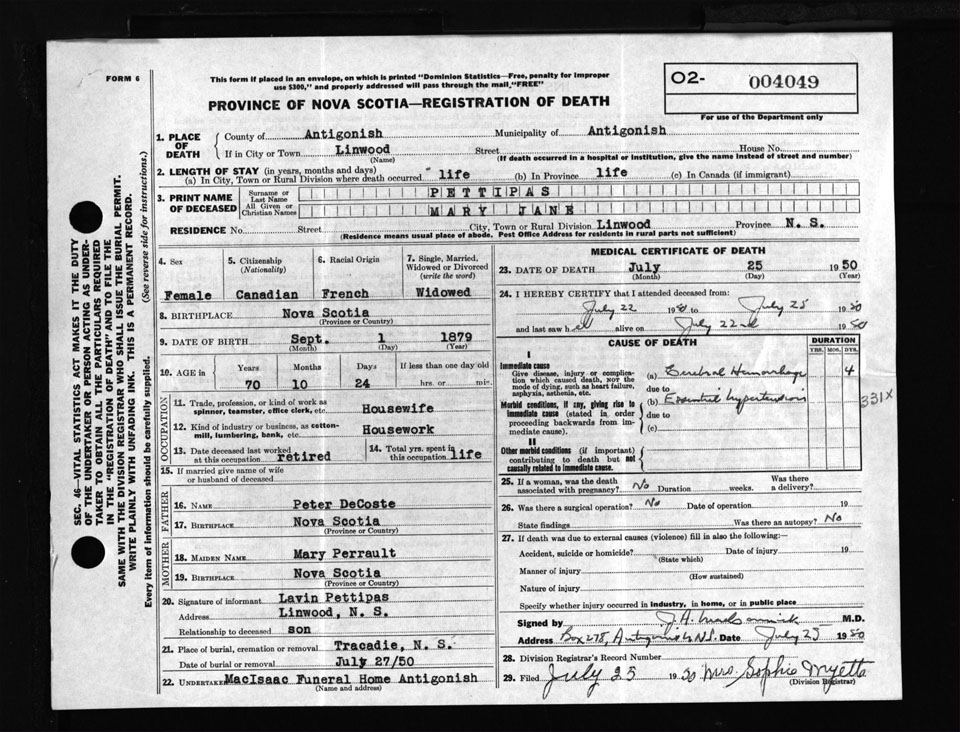 FORM 6
This form if placed in an envelope, on which is printed "Dominion Statistics—Free, penalty for improper
use $300," and properly addressed will pass through the mail "FREE"
PROVINCE OF NOVA SCOTIA—REGISTRATION OF DEATH
O2- 004049
For use of the Department only
SEC. 46—VITAL STATISTICS ACT MAKES IT THE DUTY
OF THE UNDERTAKER OR PERSON ACTING AS UNDER-
TAKER TO OBTAIN ALL THE PARTICULARS REQUIRED
IN THE "REGISTRATION OF DEATH" AND TO FILE THE
SAME WITH THE DIVISION REGISTRAR WHO SHALL ISSUE THE BURIAL PERMIT.
WRITE PLAINLY WITH UNFADING INK. THIS IS A PERMANENT RECORD.
Every item of information should be carefully supplied. (See reverse side for instructions.)
1. PLACE OF DEATH
County of Antigonish Municipality of Antigonish
If in City or Town Linwood Street House No.
(Name) (If death occurred in a hospital or institution, give the name instead of street and number)
2. LENGTH OF STAY (in years, months and days)
(a) In City, Town or Rural Division where death occurred life (b) In Province life (c) In Canada (if immigrant)
3. PRINT NAME OF DECEASED
Surname or Last Name PETTIPAS
All Given or Christian Names MARY JANE
RESIDENCE No. Street City, Town or Rural Division Linwood Province N. S.
(Residence means usual place of abode. Post Office Address for residents in rural parts not sufficient)
4. Sex 5. Citizenship (Nationality) 6. Racial Origin 7. Single, Married, Widowed or Divorced (write the word)
Female Canadian French Widowed
8. BIRTHPLACE Nova Scotia
(Province or Country)
9. DATE OF BIRTH Sept. 1 1879
(Month) (Day) (Year)
10. AGE IN Years Months Days If less than one day old
70 10 24 hrs. or min.
OCCUPATION
11. Trade, profession, or kind of work as
spinner, teamster, office clerk, etc. Housewife
12. Kind of industry or business, as cotton-
mill, lumbering, bank, etc. Housework
13. Date deceased last worked
at this occupation retired
14. Total yrs. spent in
this occupation life
15. If married give name of wife
or husband of deceased
FATHER
16. NAME Peter DeCoste
17. BIRTHPLACE Nova Scotia
(Province or Country)
MOTHER
18. MAIDEN NAME Mary Perrault
19. BIRTHPLACE Nova Scotia
(Province or Country)
20. Signature of informant Lavin Pettipas
Address Linwood, N. S.
Relationship to deceased son
21. Place of burial, cremation or removal Tracadie, N. S.
Date of burial or removal July 27/50
22. UNDERTAKER MacIsaac Funeral Home Antigonish
(Name and address)
MEDICAL CERTIFICATE OF DEATH
23. DATE OF DEATH July 25 1950
(Month) (Day) (Year)
24. I HEREBY CERTIFY that I attended deceased from:
July 22 1950 to July 25 1950
and last saw her alive on July 22nd 1950
CAUSE OF DEATH DURATION
YRS. MOS. DYS.
I
Immediate cause
Give disease, injury or complica-
tion which caused death, NOT the
mode of dying, such as heart failure,
asphyxia, asthenia, etc.
(a) Cerebral Hemorrhage 4
due to
(b) Essential hypertension 331X
due to
(c)
Morbid conditions, if any, giving rise to
immediate cause (stated in order
proceeding backwards from im-
mediate cause).
II
Other morbid conditions (if important)
contributing to death but not
causally related to immediate cause.
25. If a woman, was the death
associated with pregnancy? No Duration weeks. Was there
a delivery?
26. Was there a surgical operation? No Date of operation 19
State findings Was there an autopsy? No
27. If death was due to external causes (violence) fill in also the following:—
Accident, suicide or homicide? Date of injury 19
(State which)
Manner of injury
(How sustained)
Nature of injury
Specify whether injury occurred in industry, in home, or in public place
Signed by J. A. M.D.
Address Box 278, Antigonish N.S. Date July 25 1950
28. Division Registrar's Record Number
29. Filed July 25 1950 Mrs. Sophie Myette
(Division Registrar)